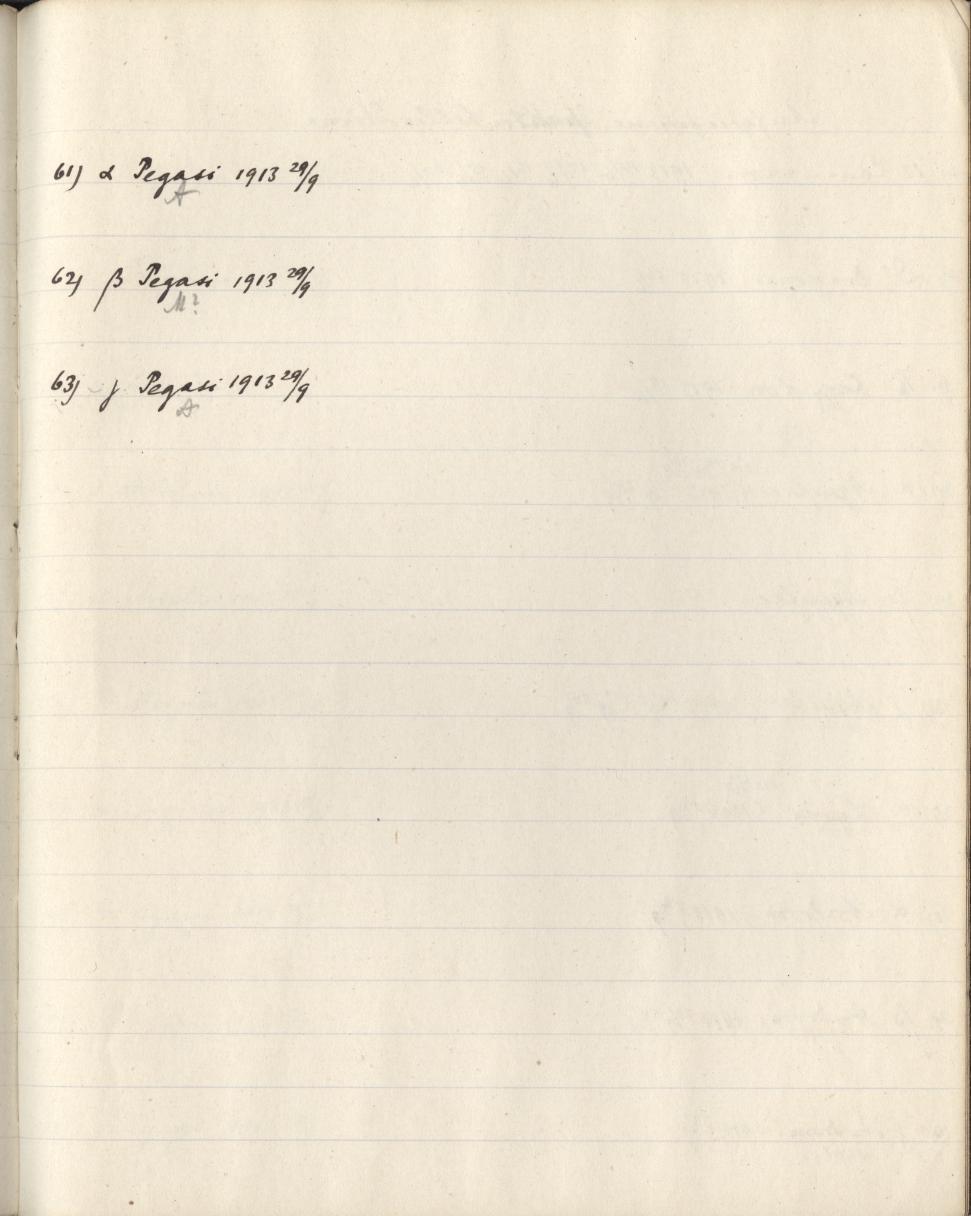 61) α Pegasi 1913 29/9
A
62) β Pegasi 1913 29/9
M?
63) γ Pegasi 1913 29/9
A